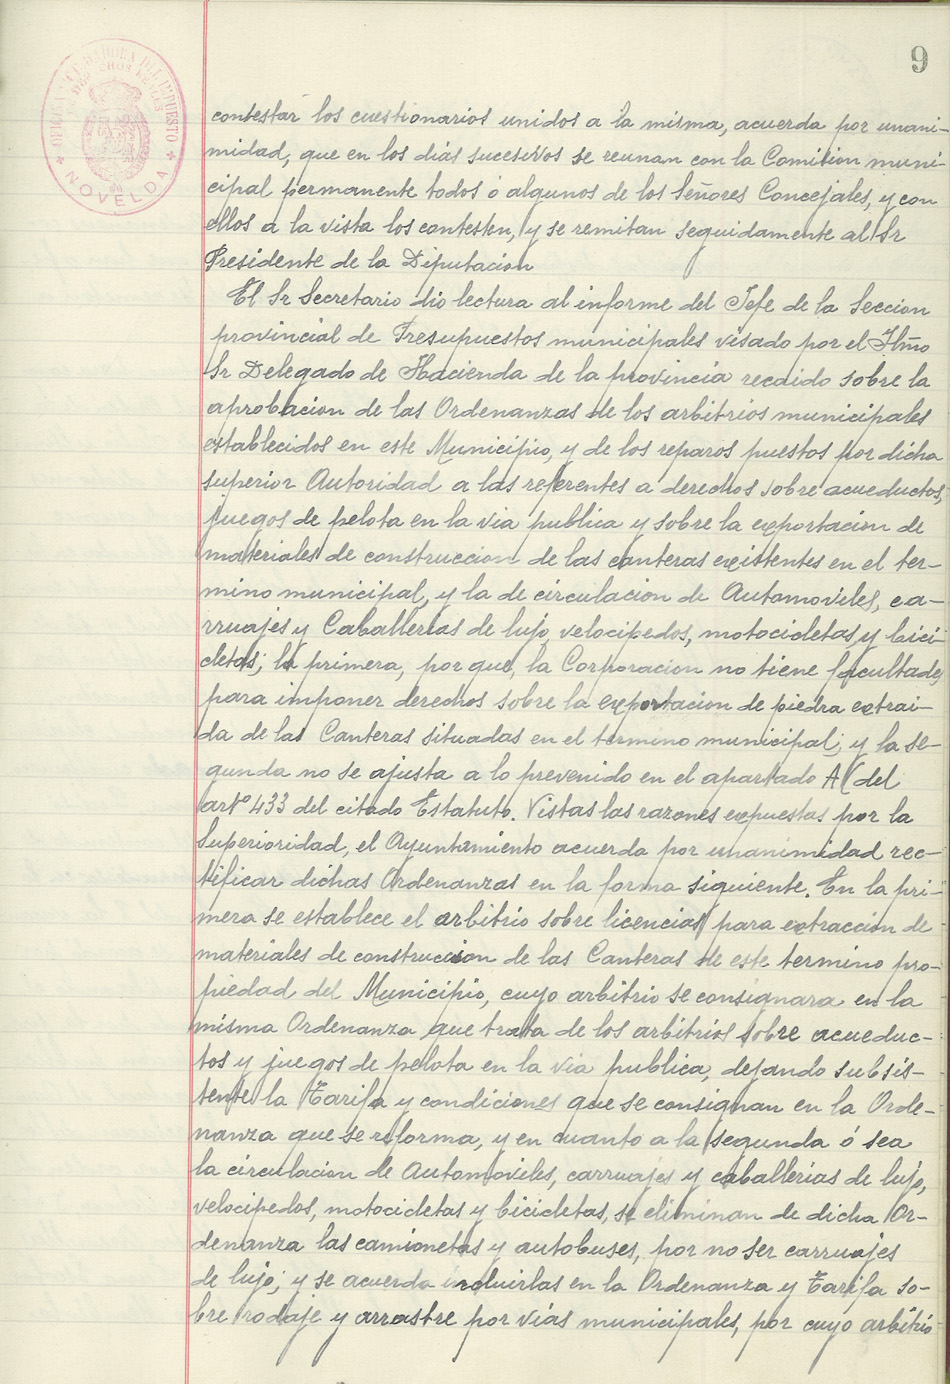 9
NOVELDA
contestar los cuestionarios unidos a la misma, acuerda por unani-
midad, que en los dias sucesivos se reunan con la Comision muni-
cipal permanente todos ó algunos de los Señores Concejales, y con
ellos a la vista los contesten, y se remitan seguidamente al Sr
Presidente de la Diputacion
El Sr Secretario dio lectura al informe del Jefe de la Seccion
provincial de Presupuestos municipales visado por el Ilmo
Sr Delegado de Hacienda de la provincia recaido sobre la
aprobacion de las Ordenanzas de los arbitrios municipales
establecidos en este Municipio, y de los reparos puestos por dicha
superior Autoridad a las referentes a derechos sobre acueductos,
juegos de pelota en la via publica y sobre la exportacion de
materiales de construccion de las canteras existentes en el ter-
mino municipal, y la de circulacion de Automoviles, ca-
rruajes y Caballerias de lujo, velocipedos, motocicletas y bici-
cletas; la primera, por que, la Corporacion no tiene facultades
para imponer derechos sobre la exportacion de piedra extrai-
da de las Canteras situadas en el termino municipal; y la se-
gunda no se ajusta a lo prevenido en el apartado A( del
artº 433 del citado Estatuto. Vistas las razones expuestas por la
Superioridad, el Ayuntamiento acuerda por unanimidad rec-
tificar dichas Ordenanzas en la forma siguiente. En la pri-
mera se establece el arbitrio sobre licencias para extraccion de
materiales de construccion de las Canteras de este termino pro-
piedad del Municipio, cuyo arbitrio se consignara en la
misma Ordenanza que trata de los arbitrios sobre acueduc-
tos y juegos de pelota en la via publica, dejando subsis-
tente la Tarifa y condiciones que se consignan en la Orde-
nanza que se reforma, y en cuanto a la segunda ó sea
la circulacion de Automoviles, carruajes y caballerias de lujo,
velocipedos, motocicletas y bicicletas, se eliminan de dicha Or-
denanza las camionetas y autobuses, por no ser carruajes
de lujo; y se acuerda incluirlas en la Ordenanza y Tarifa so-
bre rodaje y arrastre por vias municipales, por cuyo arbitrio